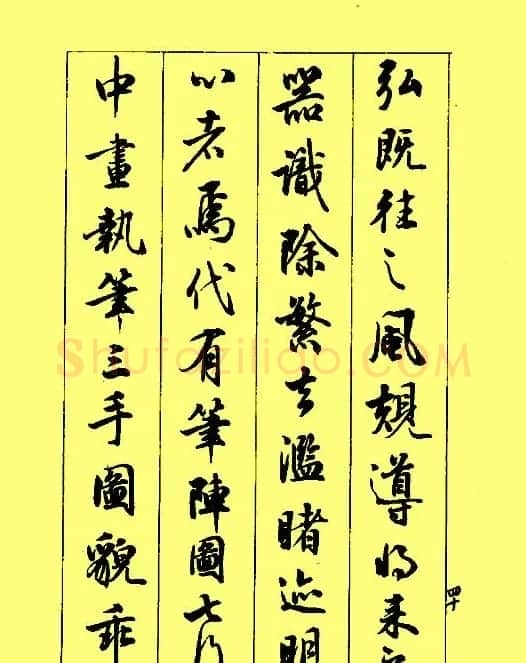 弘既往之風規導将来
器識除繁去濫睹迹明
心者焉代有筆陣圖七行
中畫執筆三手圖貌乖
四十
Shufaziliao.COM